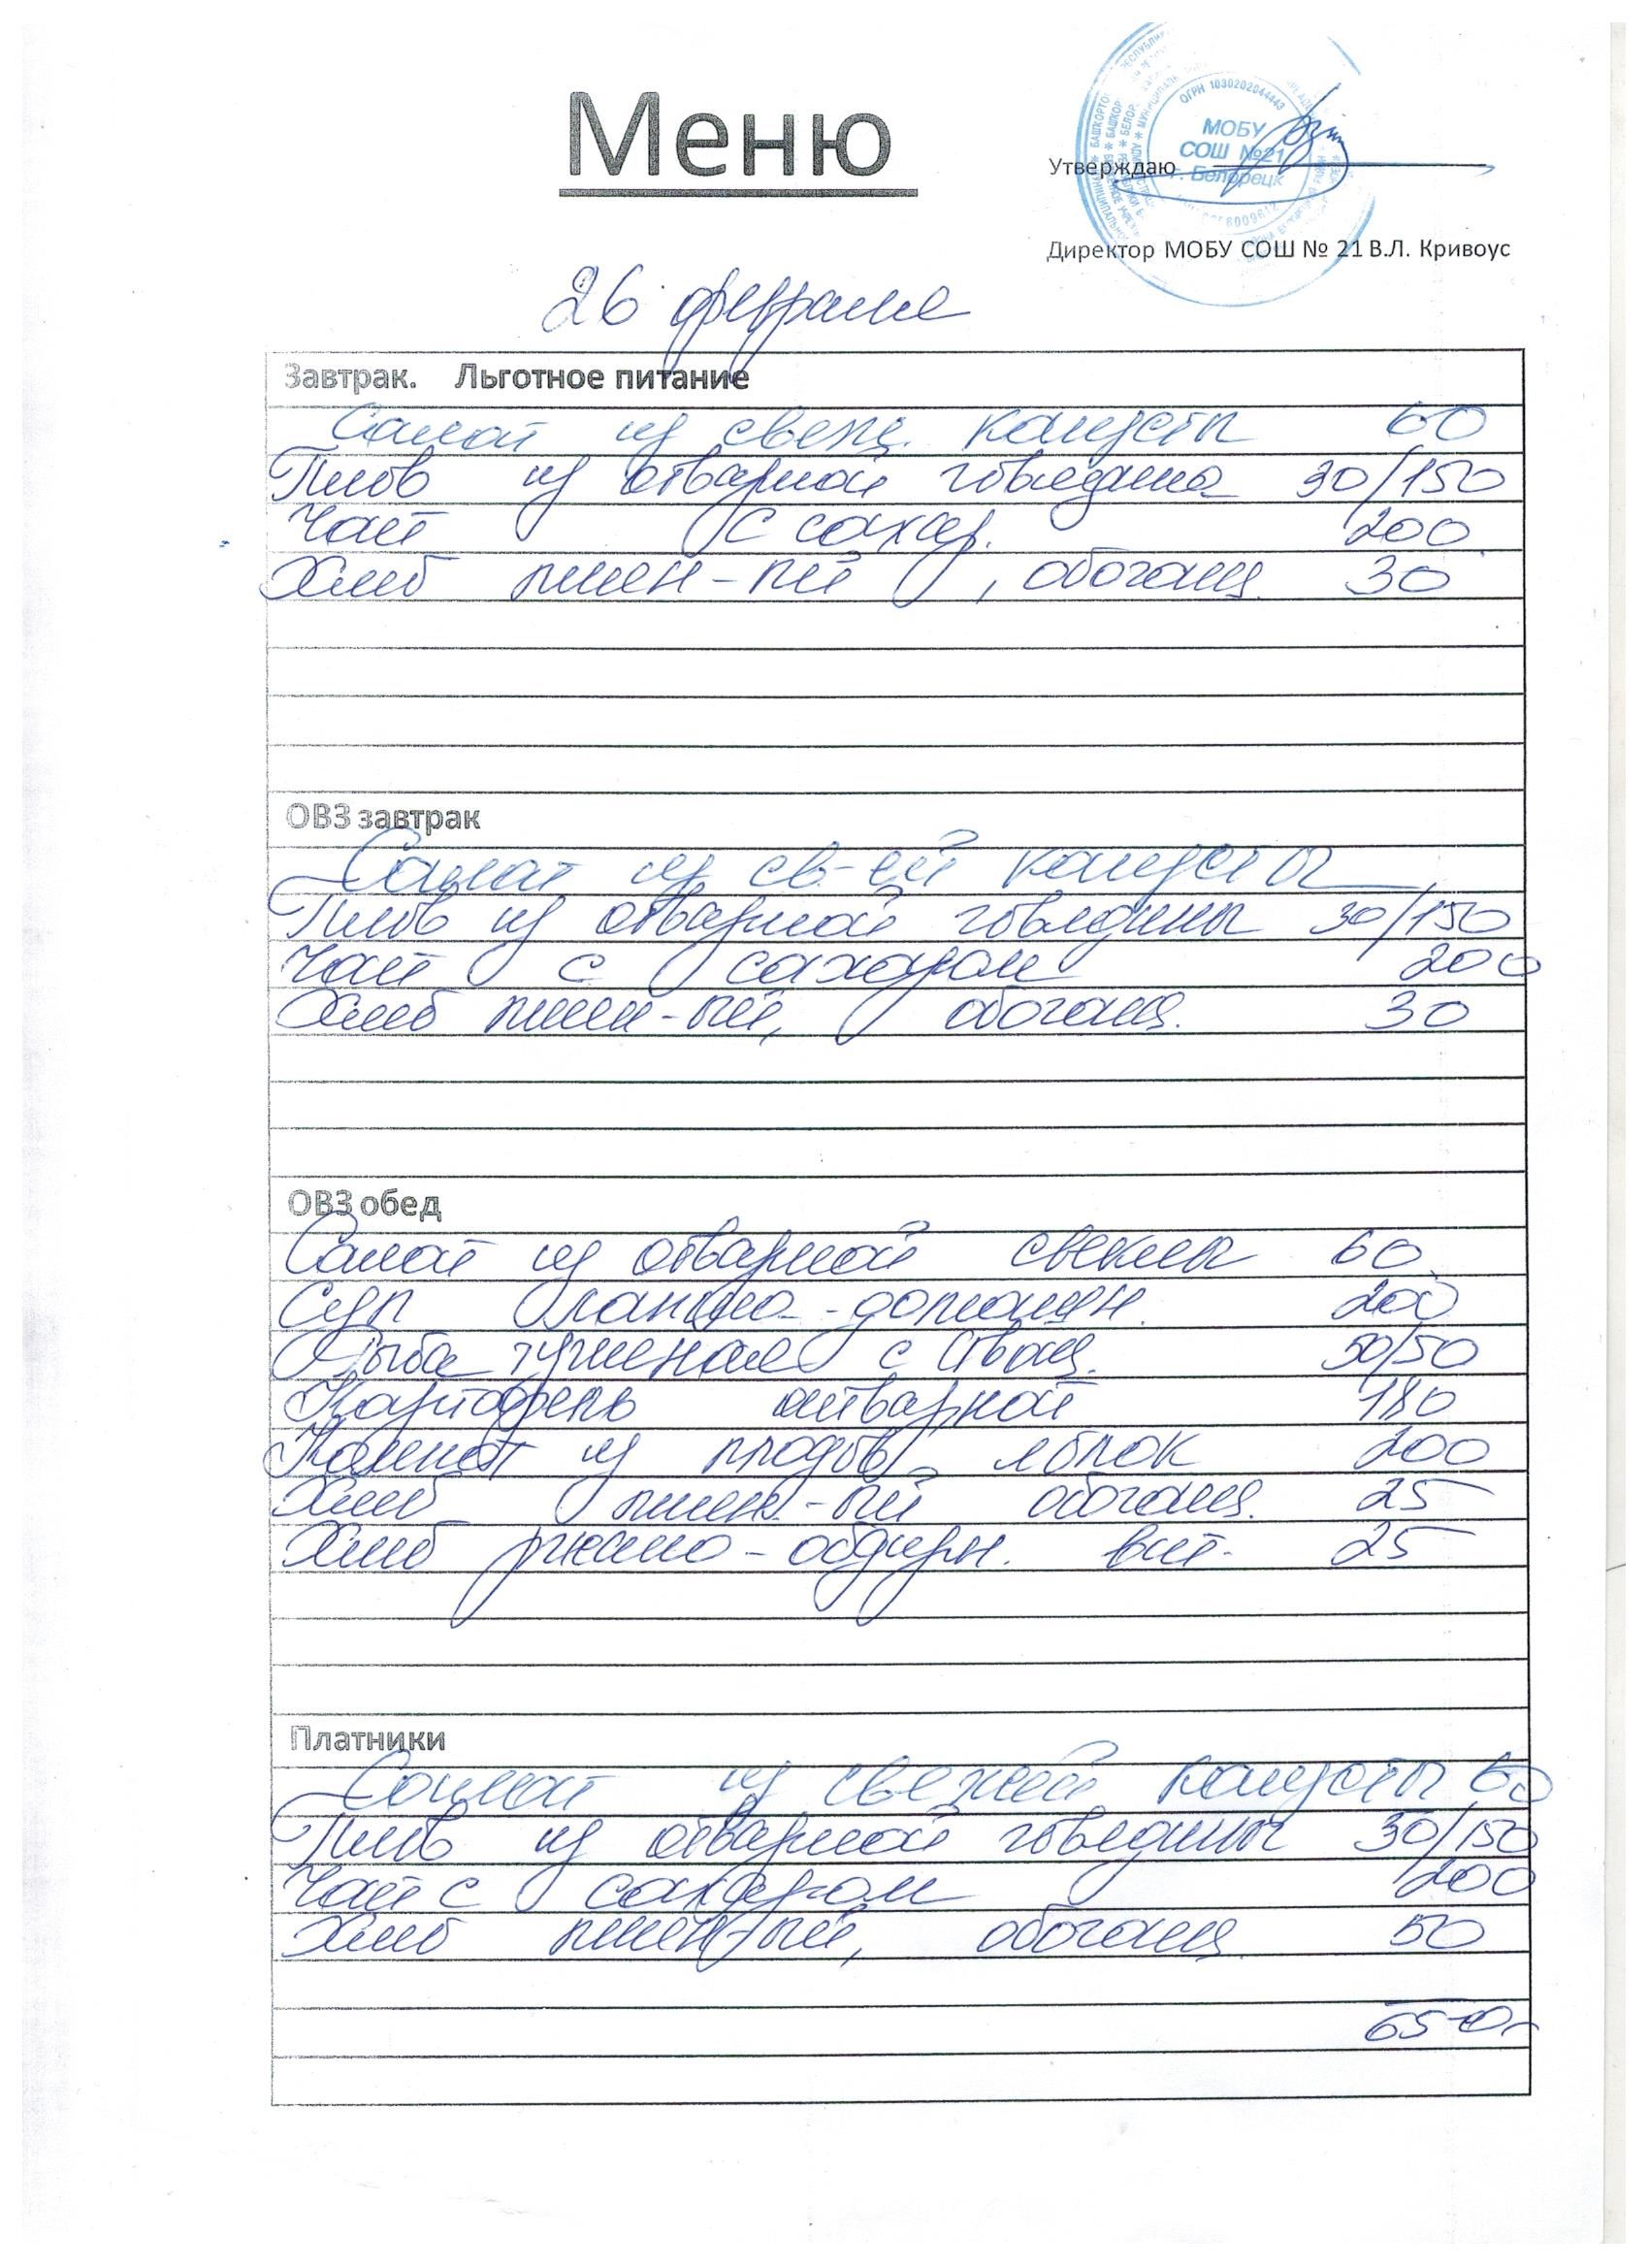 Меню
МОБУ
СОШ №21
г. Белорецк
ОГРН 1030202044443
Утверждаю
Директор МОБУ СОШ № 21 В.Л. Кривоус
26 февраля
Завтрак. Льготное питание
Салат из свеж. капусты 60
Плов из отварной говядины 30/150
Чай с сахар. 200
Хлеб пшен-ый, обогащ. 30
ОВЗ завтрак
Салат из св-ей капусты
Плов из отварной говядины 30/150
Чай с сахаром 200
Хлеб пшен-ый, обогащ. 30
ОВЗ обед
Салат из отварной свеклы 60
Суп лапша-домашн. 200
Рыба тушеная с овощ. 50/50
Картофель отварной 180
Компот из плодов яблок 200
Хлеб пшен-ый обогащ. 25
Хлеб ржано-обдирн. вит. 25
Платники
Салат из свежей капусты 60
Плов из отварной говядины 30/150
Чай с сахаром 200
Хлеб пшен-ый, обогащ. 50